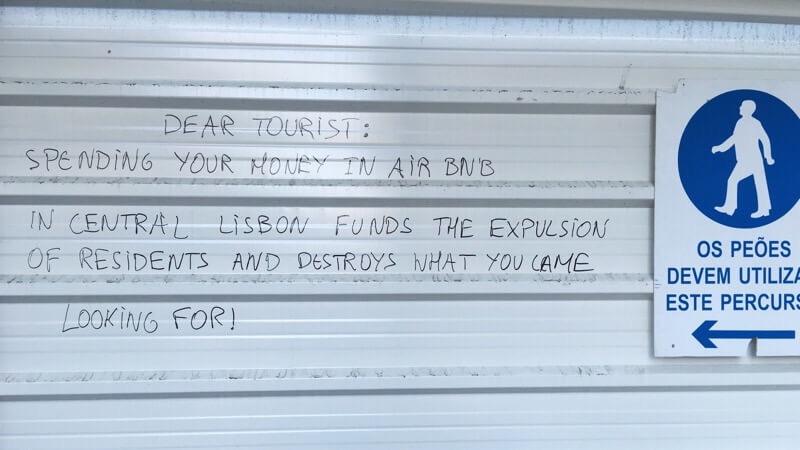 DEAR TOURIST:
SPENDING YOUR MONEY IN AIR BN'B
IN CENTRAL LISBON FUNDS THE EXPULSION
OF RESIDENTS AND DESTROYS WHAT YOU CAME
LOOKING FOR!
OS PEÕES
DEVEM UTILIZA
ESTE PERCURS